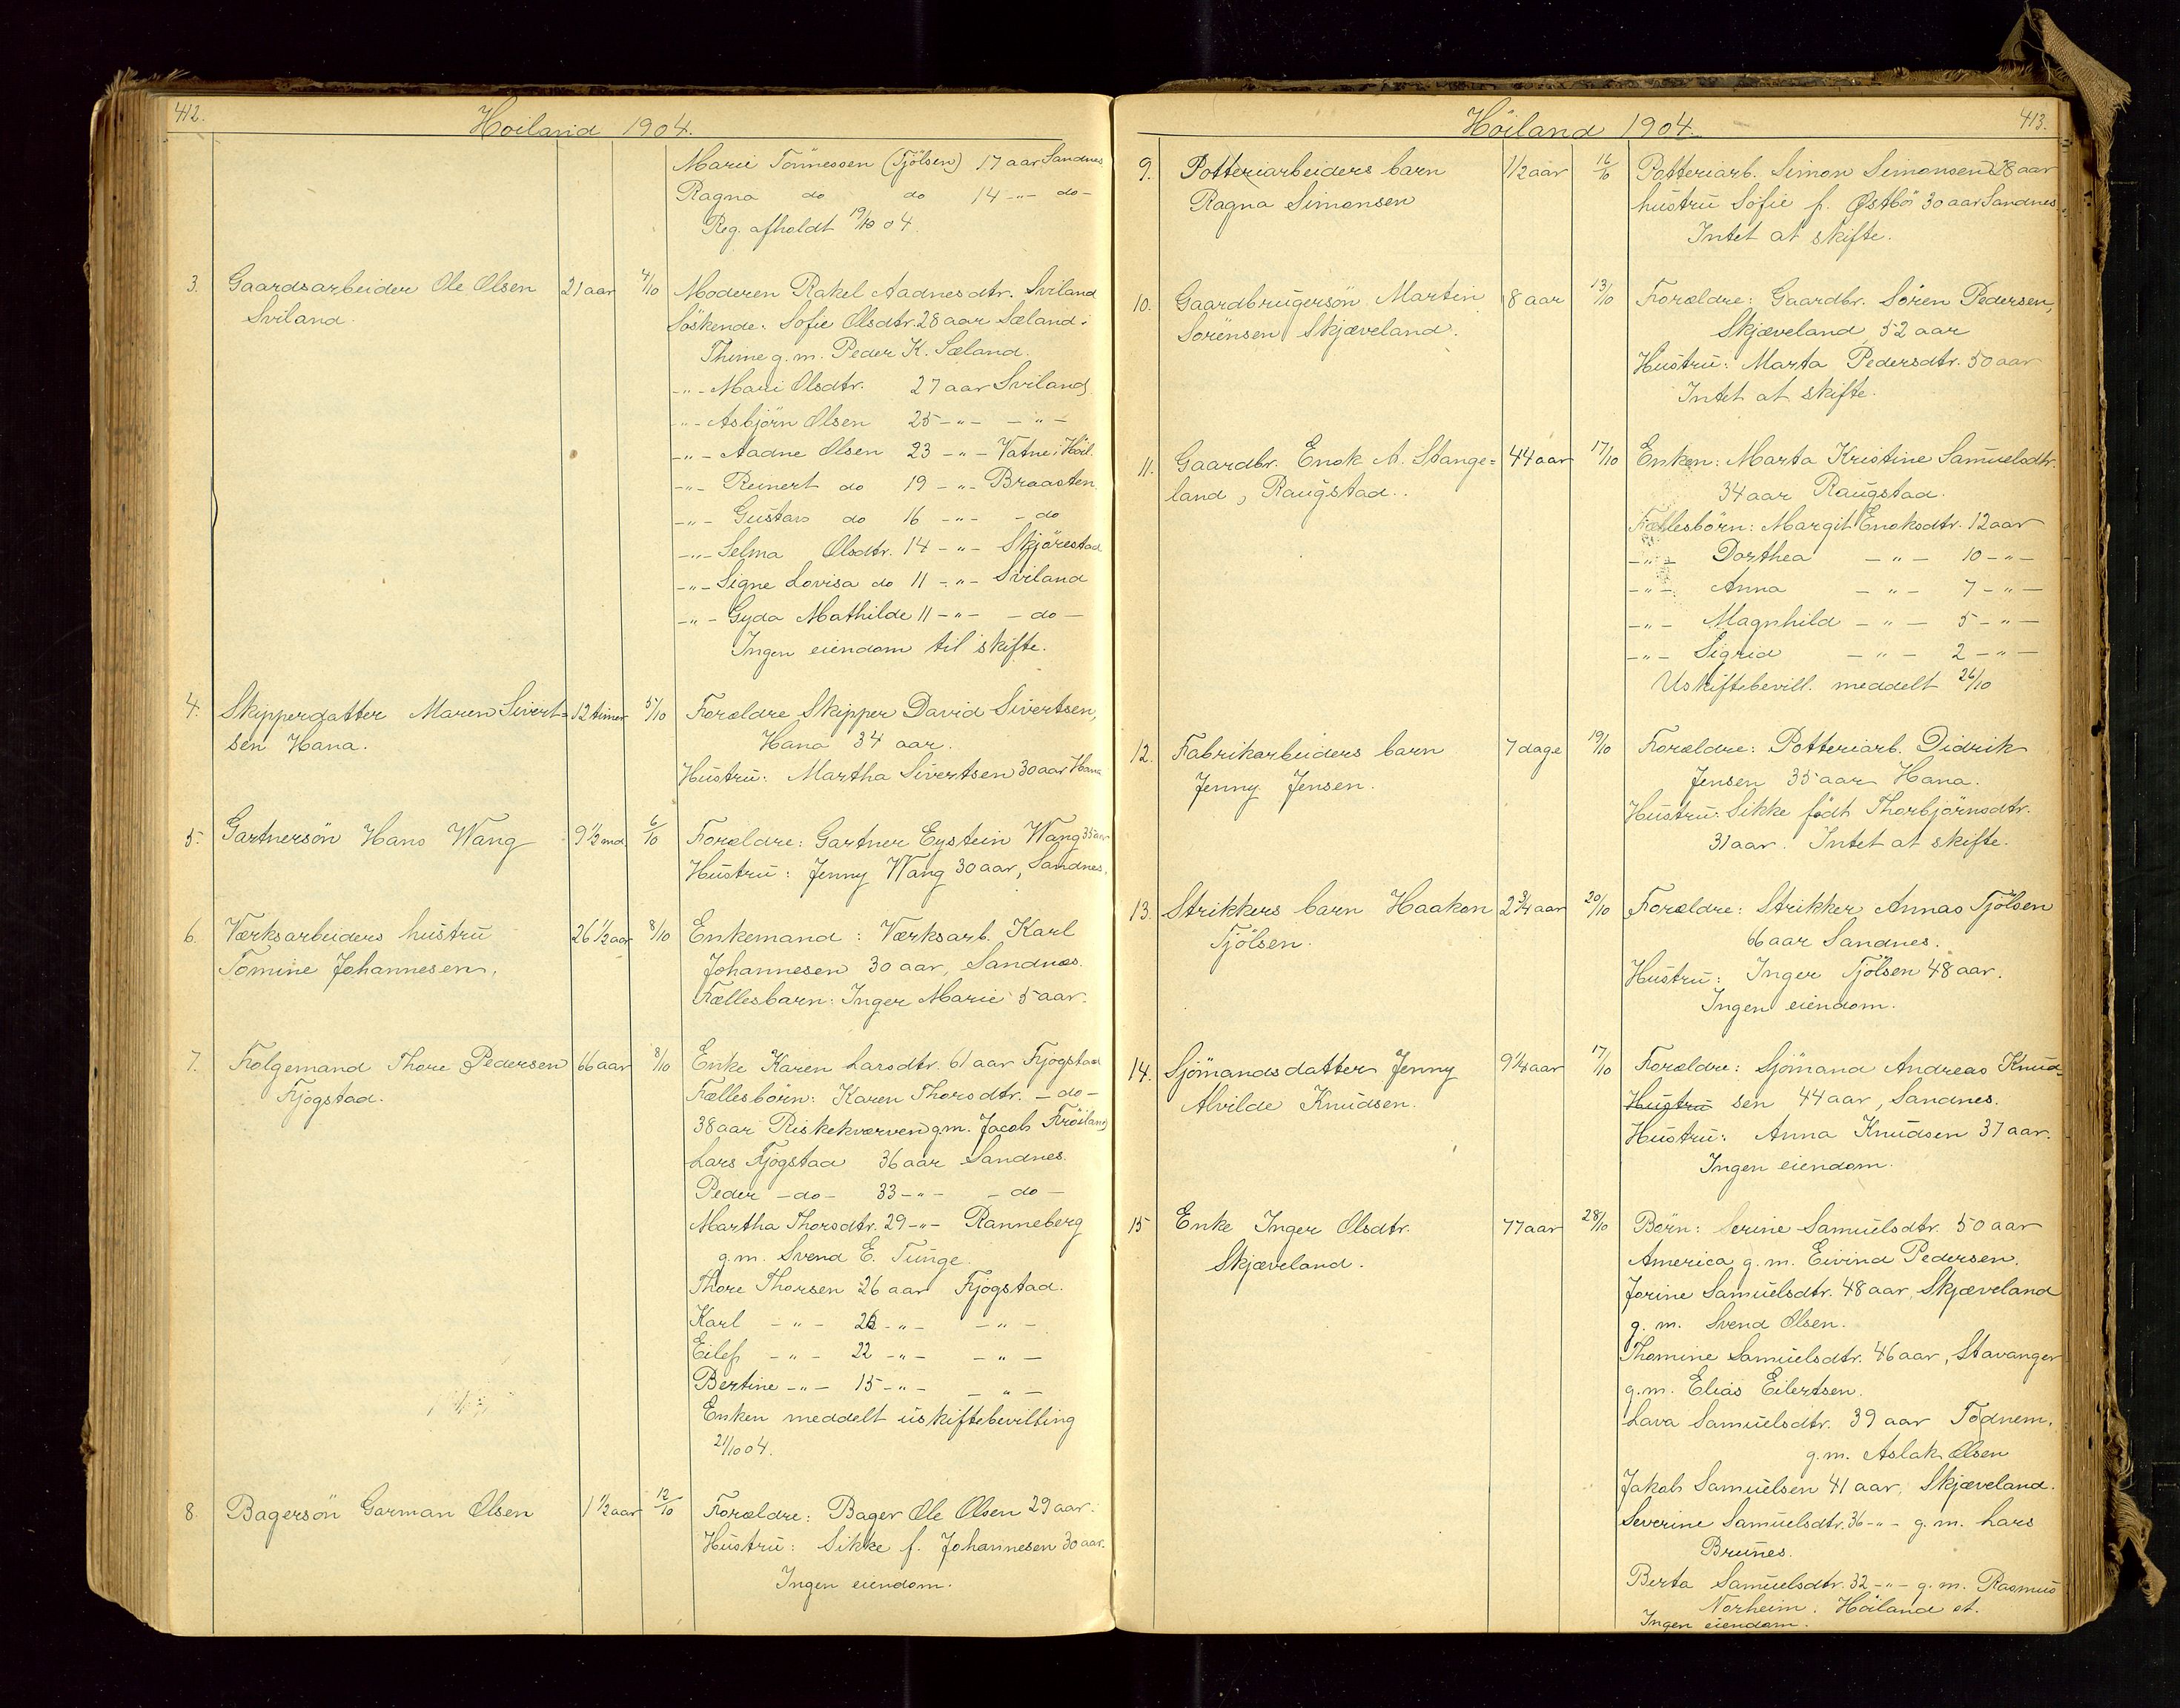 412.
Hoiland 1904.
Marie Tönnessen (Tjölsen) 17 aar Sandnes
Ragna do do 14 -"- do-
Reg. afholdt 19/10 04.
3. Gaardsarbeider Ole Olsen 21 aar 4/10 Moderen Rakel Aadnesdtr. Sviland
Sviland. Söskende: Sofie Olsdtr. 28 aar Sæland i
Thime g.m. Peder K. Sæland.
-"- Mari Olsdtr. 27 aar Sviland
-"- Asbjörn Olsen 25 -"- -"-
-"- Aadne Olsen 23 -"- Vatne i Höil.
-"- Reinert do 19 -"- Braasten
-"- Gustav do 16 -"- - do
-"- Selma Olsdtr. 14 -"- Skjörestad
-"- Signe Lovisa do 11 -"- Sviland
-"- Gyda Mathilde 11 -"- - do -
Ingen eiendom til skifte.
4. Skipperdatter Maren Sivert= 12 timer 5/10 Forældre Skipper David Sivertsen,
sen Hana. Hana 34 aar.
Hustru: Martha Sivertsen 30 aar Hana
5. Gartnersön Hans Wang 9 1/2 md. 6/10 Forældre: Gartner Eystein Wang 35 aar
Hustru: Jenny Wang 30 aar, Sandnes.
6. Værksarbeiders hustru 26 1/2 aar 8/10 Enkemand: Værksarb. Karl
Tomine Johannesen. Johannesen 30 aar, Sandnes.
Fællesbarn: Inger Marie 5 aar.
7. Folgemand Thore Pedersen 66 aar 8/10 Enke Karen Larsdtr. 61 aar Fjogstad
Fjogstad. Fællesbörn: Karen Thorsdtr. - do -
38 aar Riskekværven g.m. Jacob Fröiland
Lars Fjogstad 36 aar Sandnes.
Peder - do - 33 -"- - do -
Martha Thorsdtr. 29 -"- Ranneberg
g.m. Svend E. Tunge.
Thore Thorsen 26 aar Fjogstad.
Karl -"- -"- -"-
Eilef -"- 22 -"- -"-
Bertine -"- 15 -"- -"-
Enken meddelt uskiftebevilling
21/10 04.
8. Bagersön Garman Olsen 1 1/2 aar 12/10 Forældre: Bager Ole Olsen 29 aar.
Hustru: Sikke f. Johannesen 30 aar.
Ingen eiendom.
Höiland 1904.
413.
9. Potteriarbeiders barn 1/2 aar 16/10 Potteriarb. Simon Simonsen 28 aar
Ragna Simonsen hustru Sofie f. Østbö 30 aar Sandnes.
Intet at skifte.
10. Gaardbrugersön Martin 8 aar 13/10 Forældre: Gaardbr. Sören Pedersen,
Sörensen Skjæveland. Skjæveland 52 aar
Hustru: Marta Pedersdtr. 50 aar
Intet at skifte.
11. Gaardbr. Enok A. Stange= 44 aar 17/10 Enken: Marta Kristine Samuelsdtr.
land, Raugstad. 34 aar Raugstad.
Fællesbörn: Margit Enoksdtr. 12 aar
-"- Dorthea -"- 10 -"-
-"- Anna -"- 7 -"-
-"- Magnhild -"- 5 -"-
-"- Sigrid -"- 2 -"-
Uskiftebevill. meddelt 26/10
12. Fabrikarbeiders barn 7 dage 19/10 Forældre: Potteriarb. Didrik
Jenny Jensen. Jensen 35 aar Hana.
Hustru: Sikke födt Thorbjörnsdtr.
31 aar. Intet at skifte.
13. Strikkers barn Haakon 2 3/4 aar 20/10 Forældre: Strikker Annas Tjölsen
Tjölsen. 66 aar Sandnes.
Hustru: Inger Tjölsen 48 aar.
Ingen eiendom.
14. Sjömandsdatter Jenny 9 1/4 aar 17/10 Forældre: Sjömand Andreas Knud-
Alvilde Knudsen. Hustru sen 44 aar, Sandnes.
Hustru: Anna Knudsen 37 aar.
Ingen eiendom.
15 Enke Inger Olsdtr. 77 aar 28/10 Börn: Serine Samuelsdtr. 50 aar
Skjæveland. America g.m. Eivind Pedersen.
Jorine Samuelsdtr. 48 aar, Skjæveland
g.m. Svend Olsen.
Thomine Samuelsdtr. 46 aar, Stavanger
g.m. Elias Eilertsen.
Lava Samuelsdtr. 39 aar Tödnem.
g.m. Aslak Olsen
Jakob Samuelsen 41 aar, Skjæveland.
Severine Samuelsdtr. 36 -"- g.m. Lars
Brunes.
Berta Samuelsdtr. 32 -"- g.m. Rasmus
Norheim. Höiland et.
Ingen eiendom.